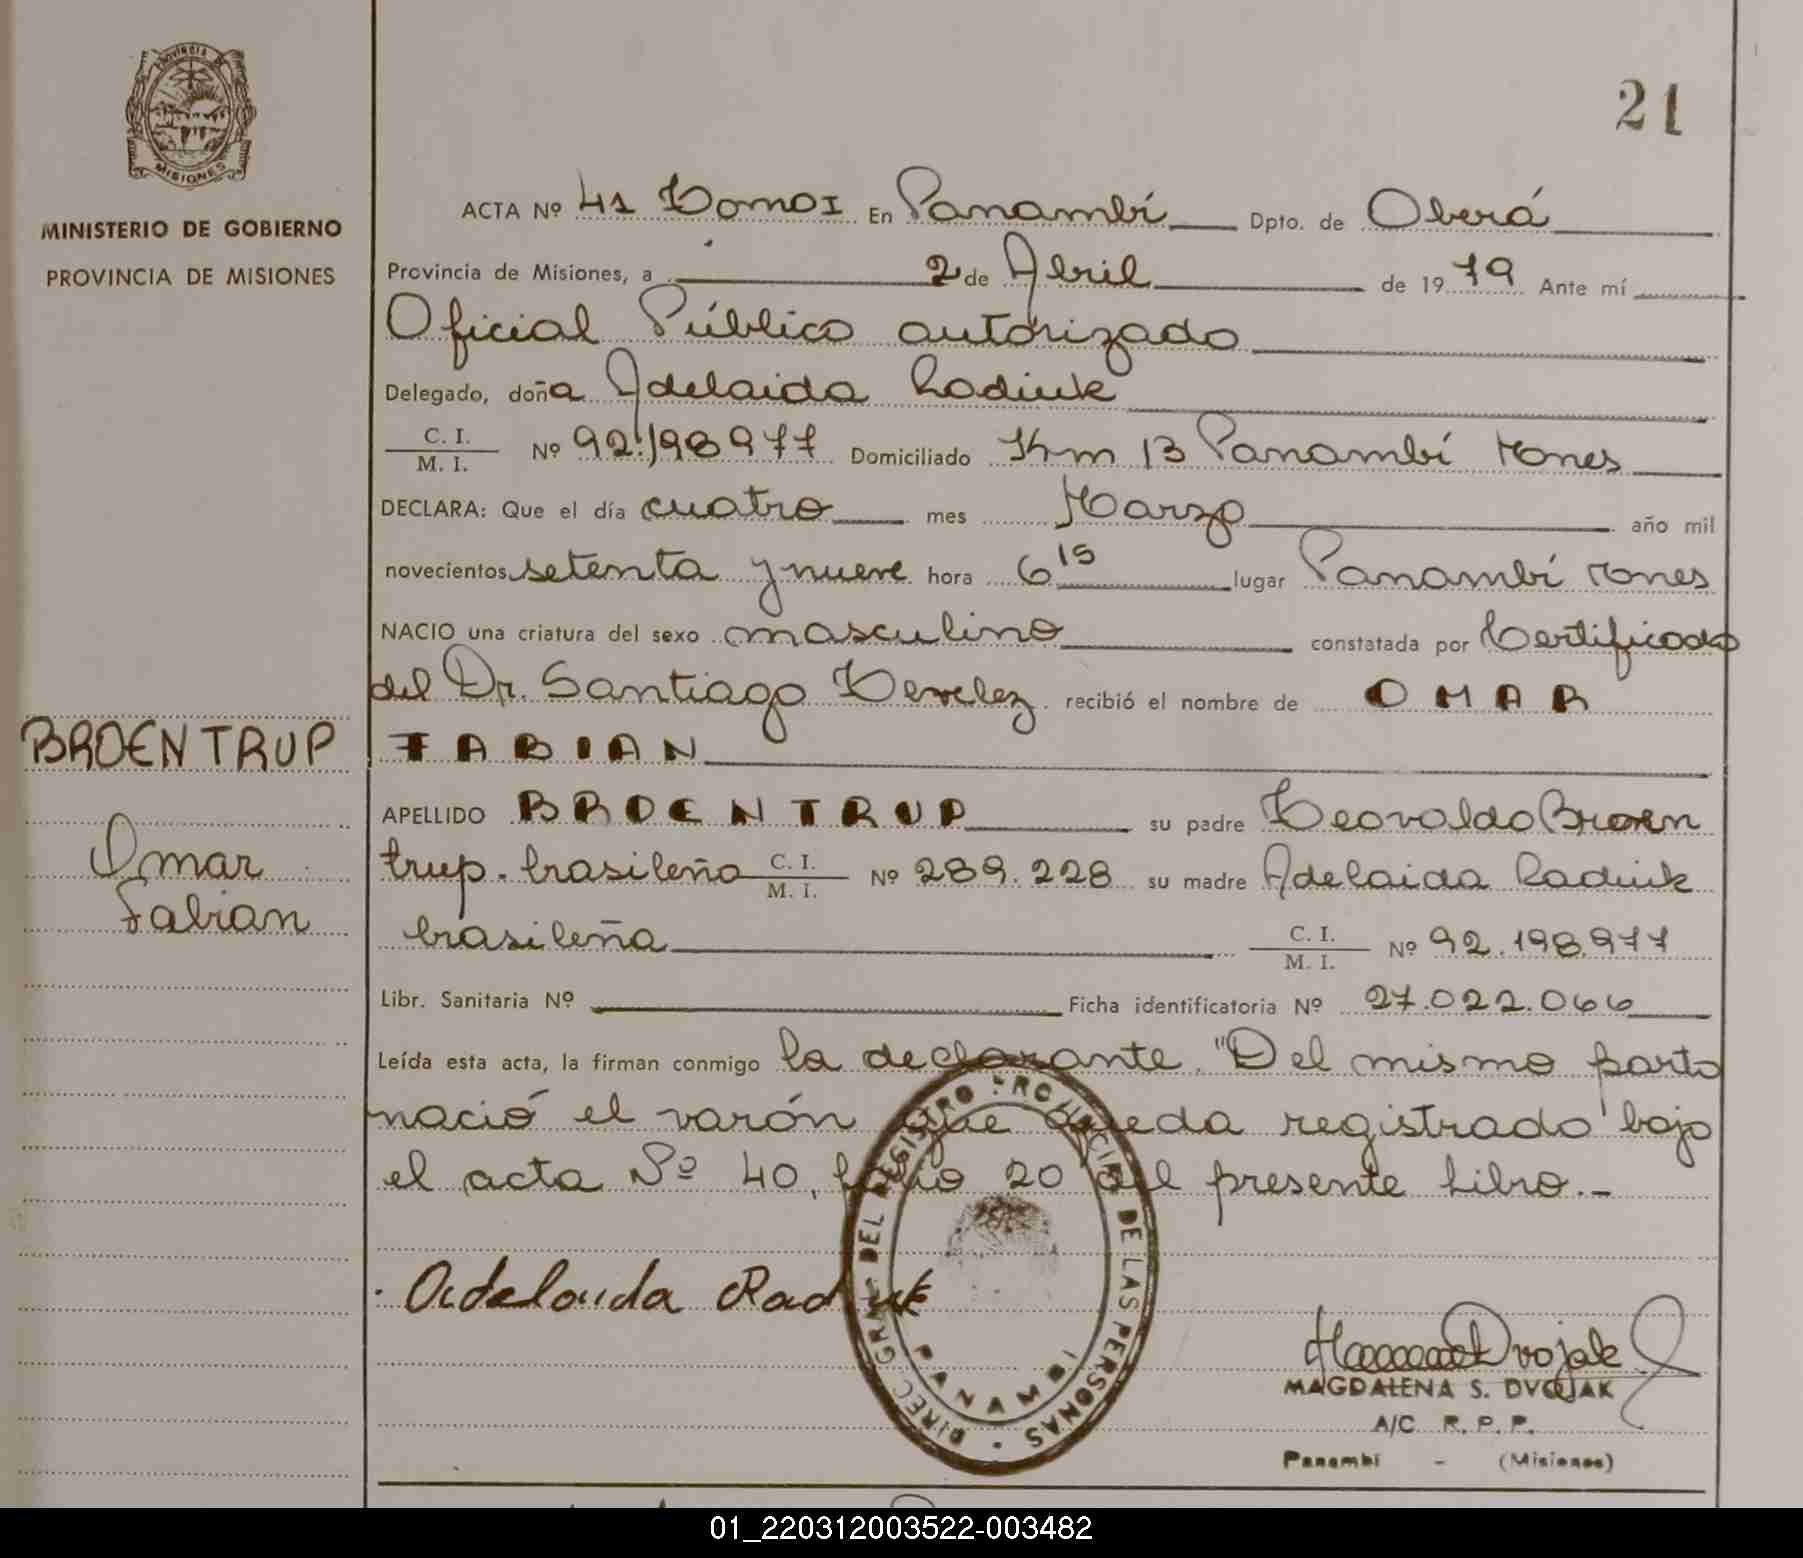 PROVINCIA DE
MISIONES
MINISTERIO DE GOBIERNO
PROVINCIA DE MISIONES
BROENTRUP
Omar
Fabian
21
ACTA Nº 41 Tomo I En Panambí Dpto. de Oberá
Provincia de Misiones, a 2 de Abril de 1979 Ante mí
Oficial Público autorizado
Delegado, doña Adelaida Radiuk
C. I.
M. I. Nº 92.198977 Domiciliado Km 13 Panambí Mones
DECLARA: Que el día cuatro mes Marzo año mil
novecientos setenta y nueve hora 6 15 lugar Panambí Mones
NACIO una criatura del sexo masculino constatada por Certificado
del Dr. Santiago recibió el nombre de OMAR
FABIAN
APELLIDO BROENTRUP su padre Teovaldo Broen
trup. brasileño C. I. M. I. Nº 289.228 su madre Adelaida Radiuk
brasileña C. I. M. I. Nº 92.198.977
Libr. Sanitaria Nº Ficha identificatoria Nº 27.022.066
Leída esta acta, la firman conmigo la declarante. "Del mismo parto
nació el varón que queda registrado bajo
el acta Nº 40, folio 20 del presente Libro.-
Adelaida Radiuk
DIREC. GRAL. DEL REGISTRO PROVINCIAL DE LAS PERSONAS
PANAMBI
Dvojak
MAGDALENA S. DVOJAK
A/C R. P. P.
Panambí - (Misiones)
01_220312003522-003482